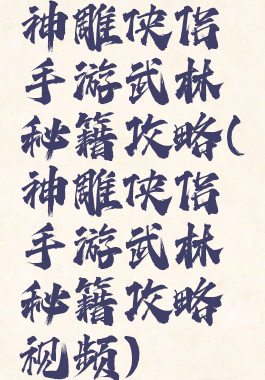 神雕侠侣
手游武林
秘籍攻略(
神雕侠侣
手游武林
秘籍攻略
视频)